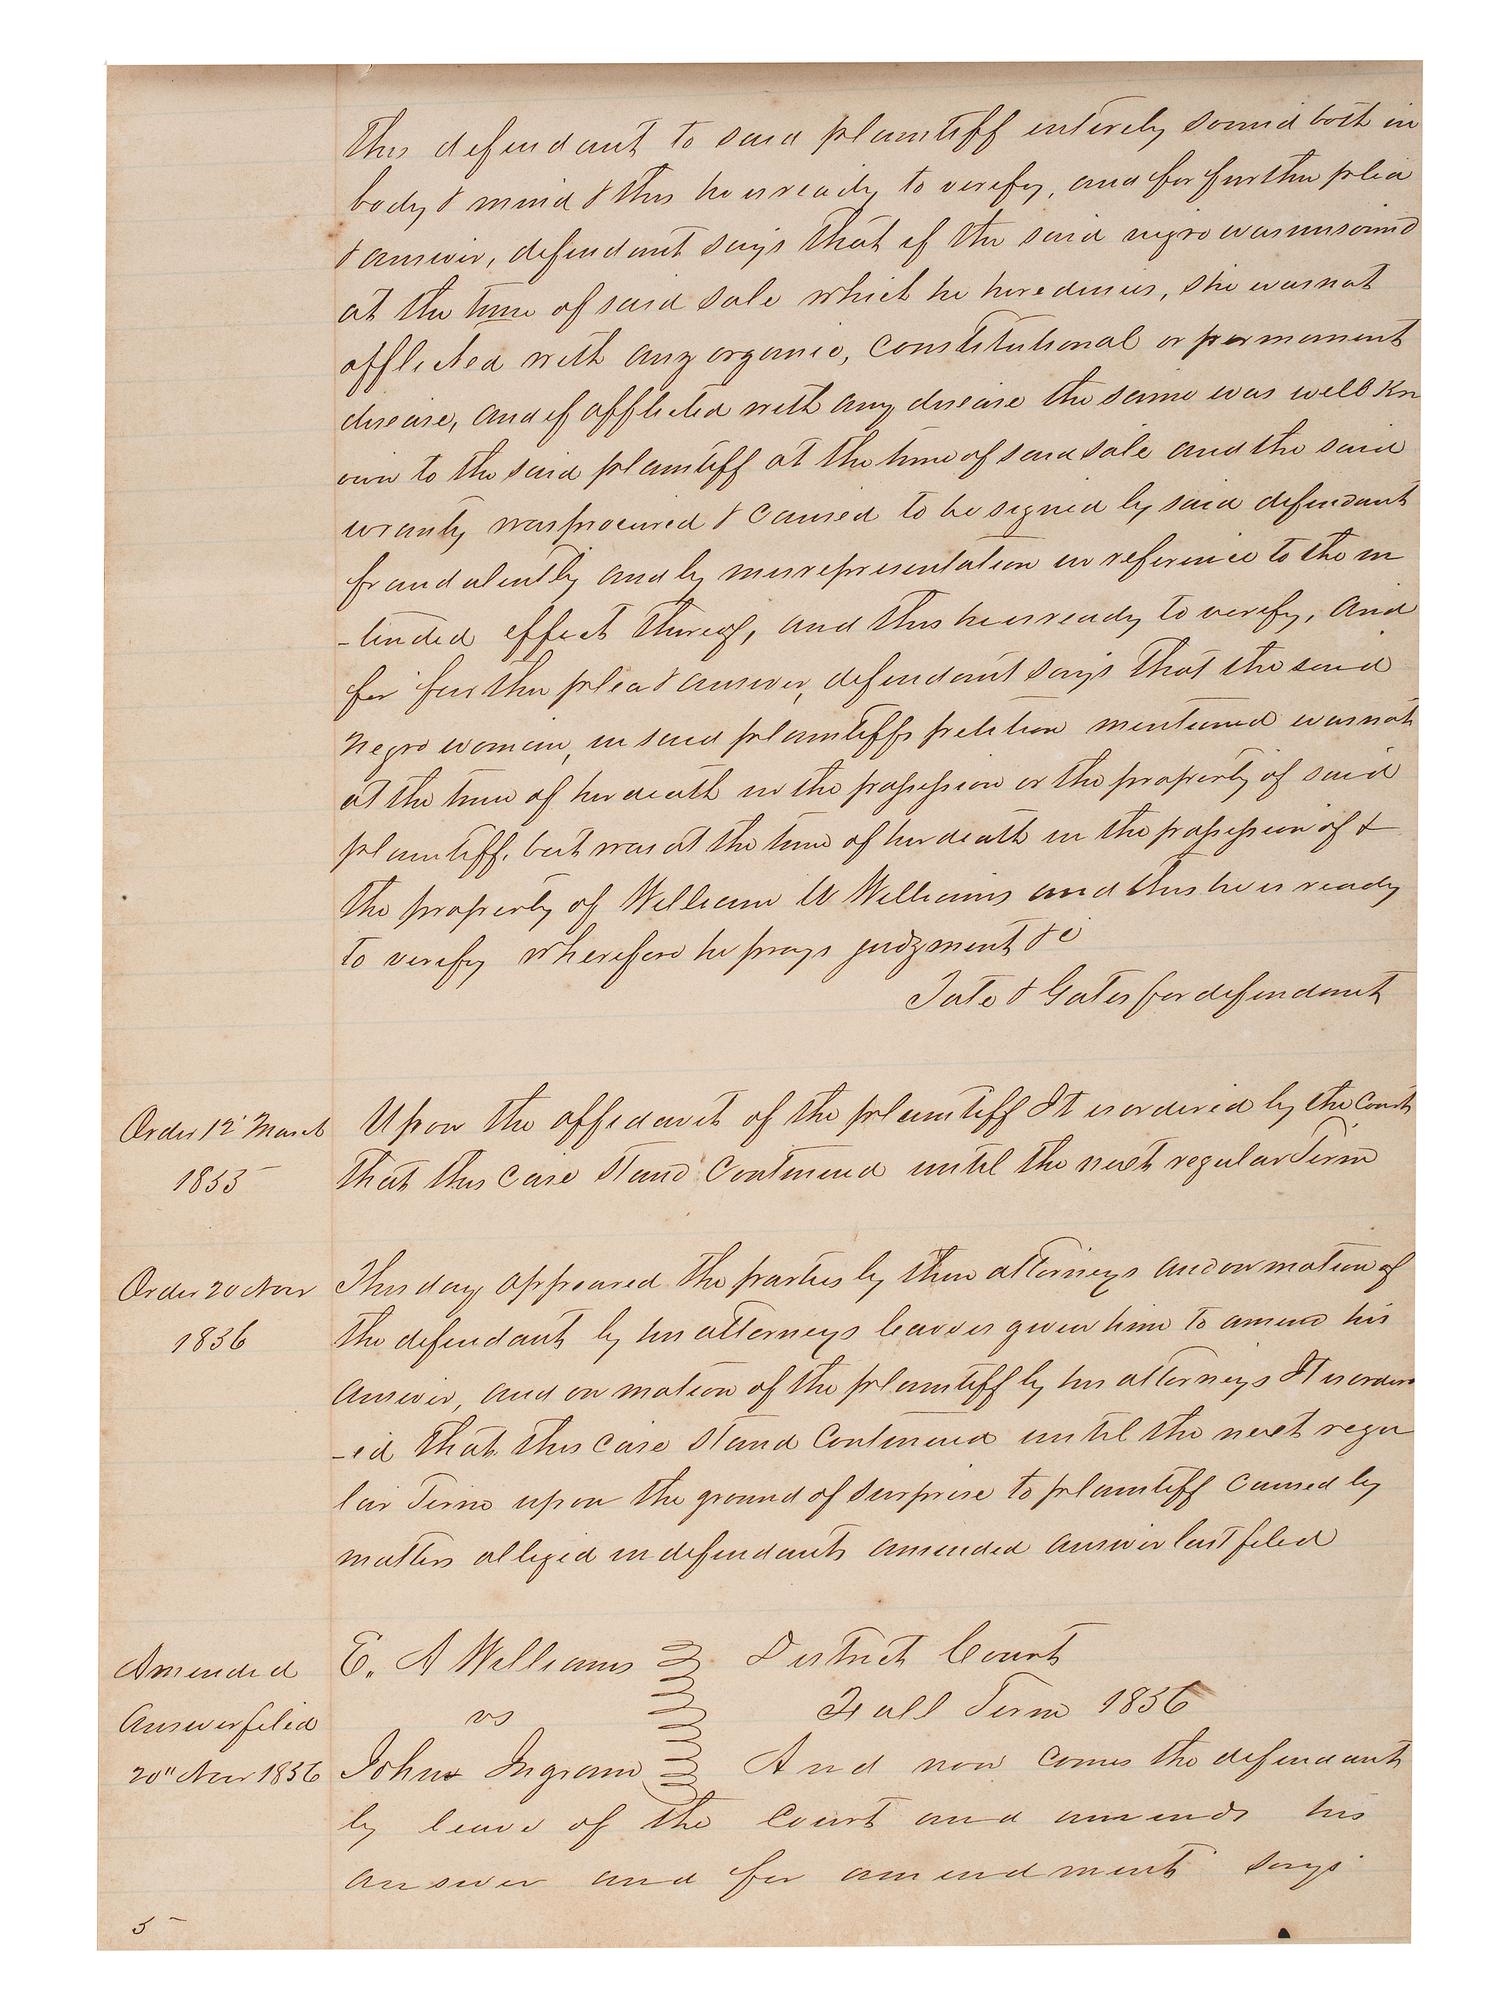 this defendant to said plaintiff entirely sound both in
body & mind & this he is ready to verify, and for further plea
& answer, defendant says that if the said negro was unsound
at the time of said sale which he here denies, she was not
afflicted with any organic, constitutional or permanent
disease, and if afflicted with any disease the same was well kn
own to the said plaintiff at the time of said sale and the said
wranty was procured & caused to be signed by said defendant
fraudulently and by misrepresentation in reference to the in
-tended effect thereof, and this he is ready to verify, and
for further plea & answer, defendant says that the said
negro woman, in said plaintiffs petition mentioned was not
at the time of her death in the possession or the property of said
plaintiff, but was at the time of her death in the possession of &
the property of William W Williams and this he is ready
to verify wherefore he prays judgment &c
Tate & Gates for defendant
Order 12' March
1855
Upon the affidavit of the plaintiff It is ordered by the court
that this case stand continued until the next regular Term
Order 20 Novr
1856
This day appeared the parties by their attorneys and on motion of
the defendant by his attorneys leave is given him to amend his
answer, and on motion of the plaintiff by his attorneys It is order
-ed that this case stand continued until the next regu
lar Term upon the ground of surprise to plaintiff caused by
matters alleged in defendants amended answer last filed
Amended
Answer filed
20" Novr 1856
E. A Williams District Court
vs Fall Term 1856
John Ingram And now comes the defendant
by leave of the court and amends his
answer and for amendment says
5